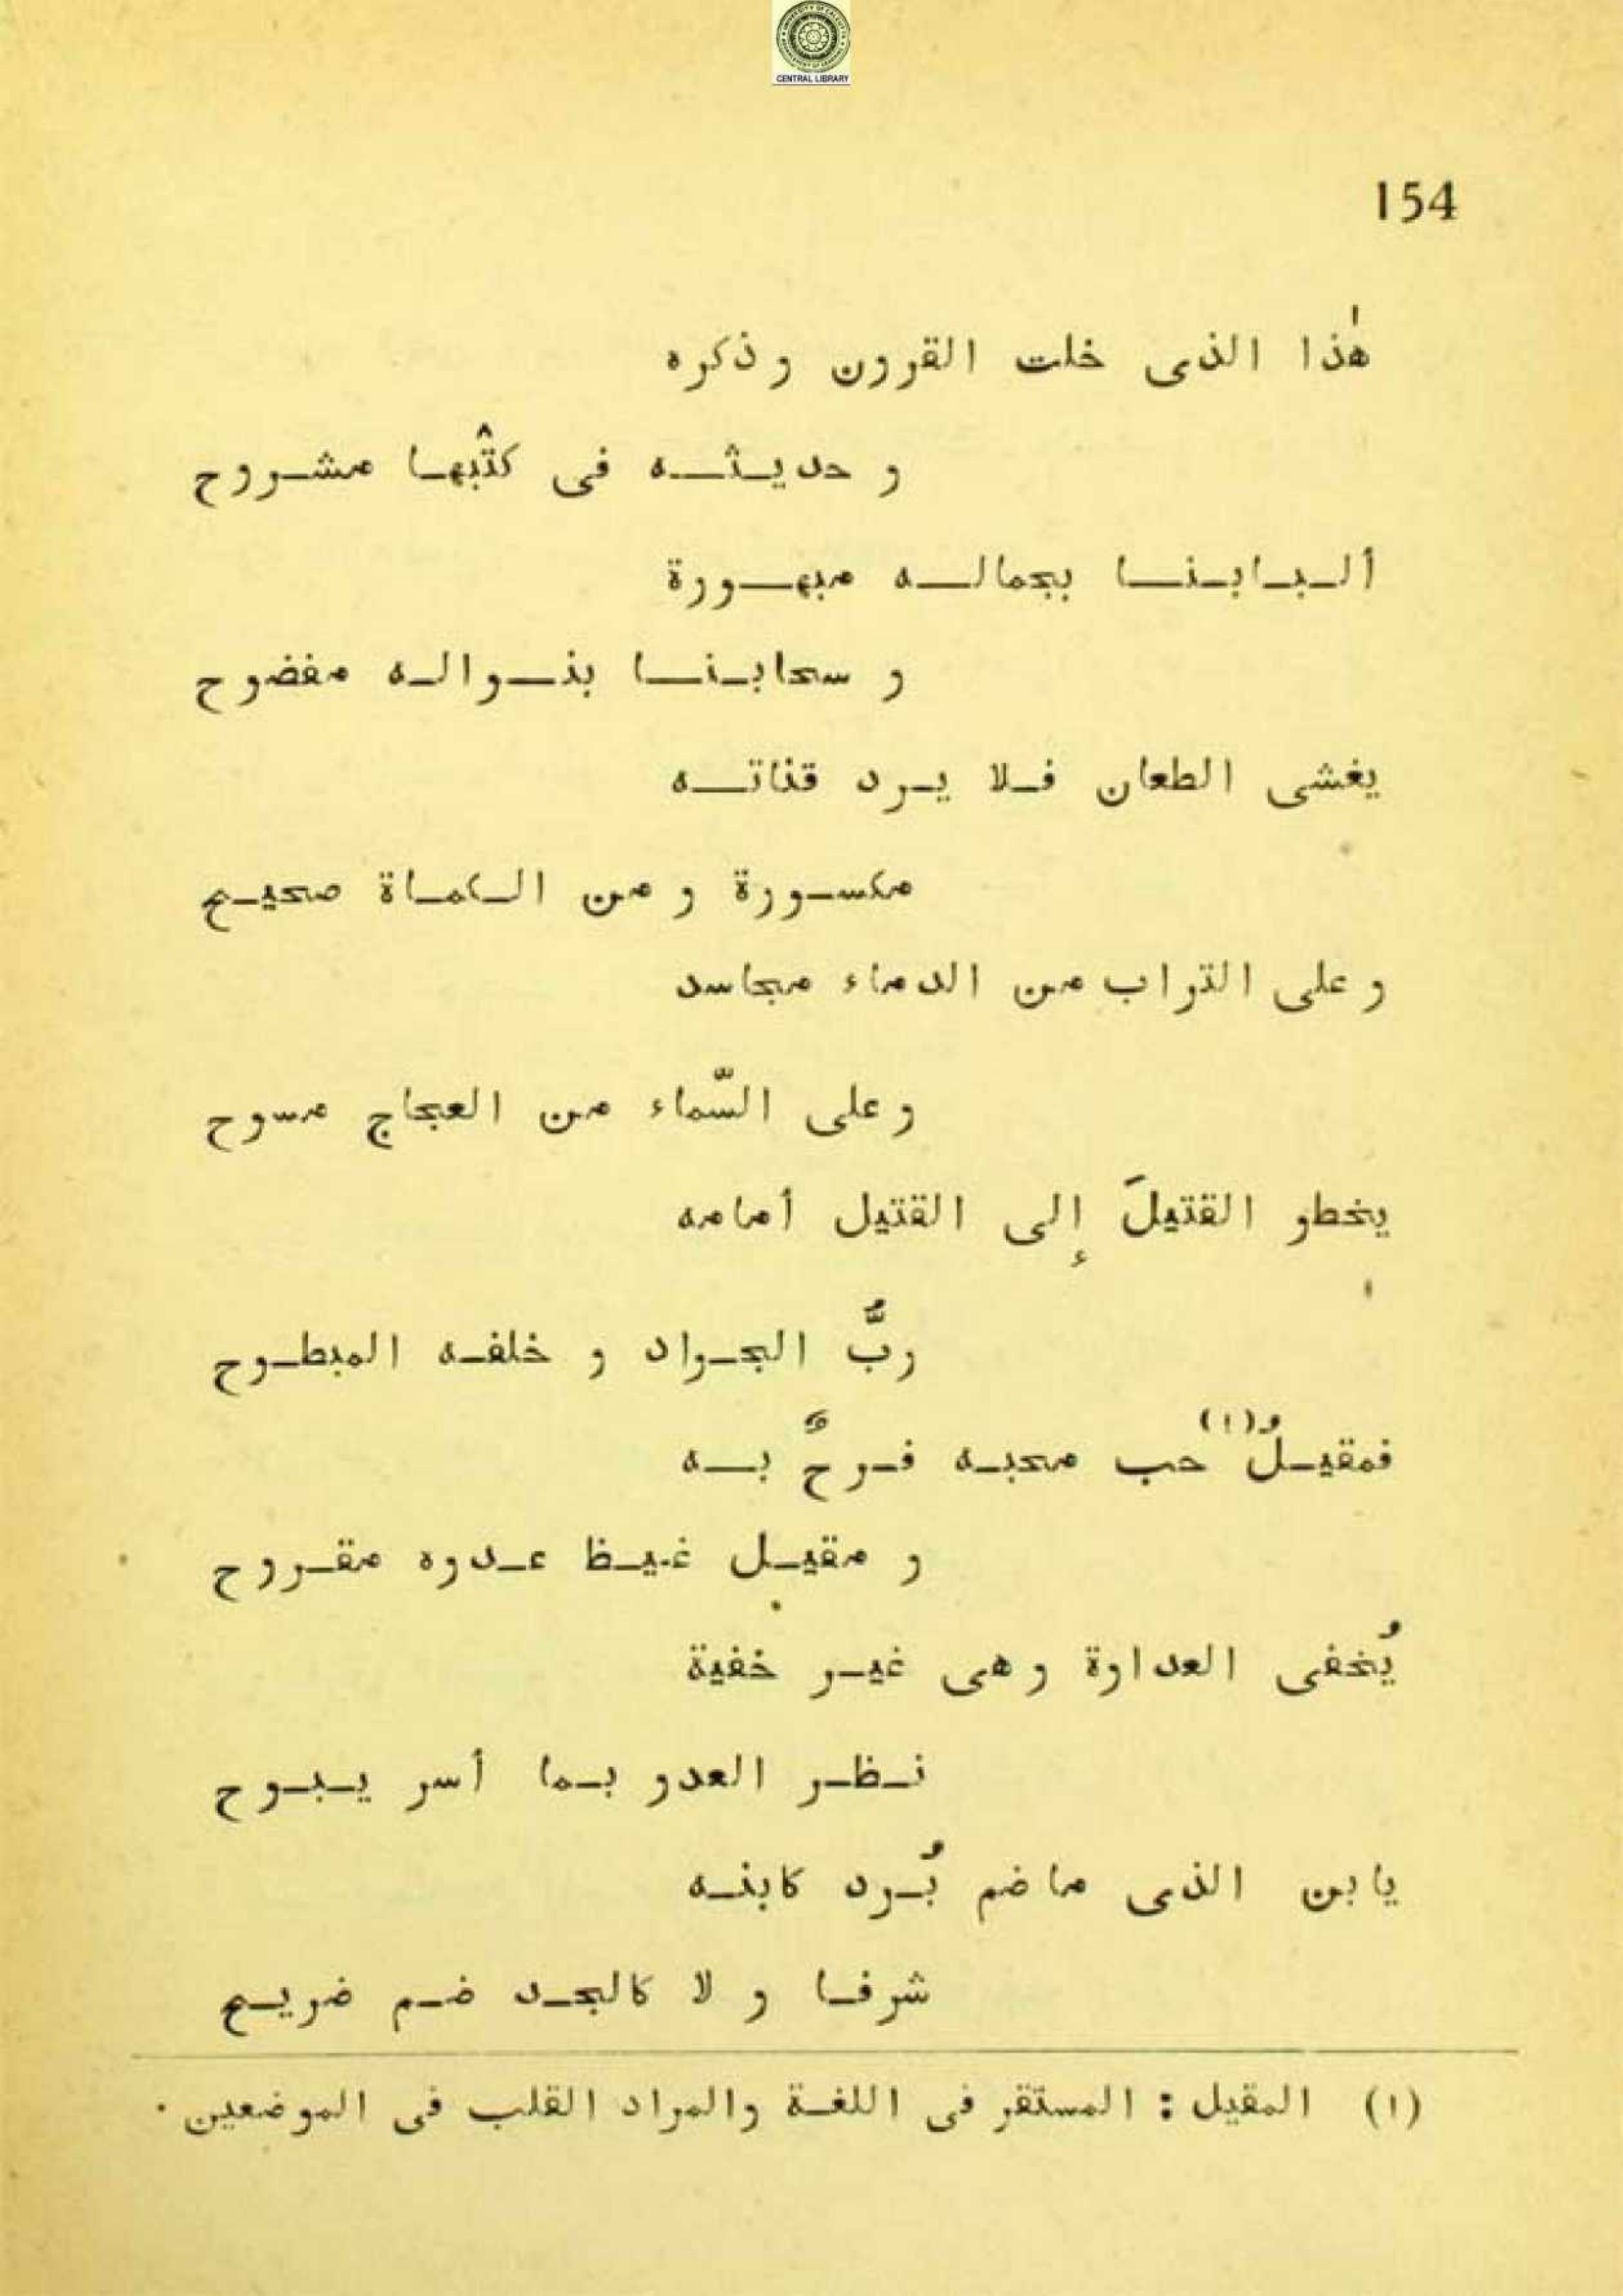 CENTRAL LIBRARY
154
هٰذا الذى خلت القرون و ذكره
و حديثه فى كتْبها مشروح
ألبابنا بجماله مبهورة
و سحابنا بنواله مفضوح
يغشى الطعان فلا يرد قناته
مكسورة و من الكماة صحيح
و على التراب من الدماء مجاسد
و على السّماء من العجاج مسوح
يخطو القتيلَ إلى القتيل أمامه
ربُّ الجواد و خلفه المبطوح
فمقيلُ(١) حب محبه فرحٌ به
و مقيل غيظ عدوه مقروح
يُخفى العداوة و هى غير خفية
نظر العدو بما أسر يبوح
يابن الذى ماضم بُرد كابنه
شرفا و لا كالجد ضم ضريح
(١) المقيل : المستقر فى اللغة والمراد القلب فى الموضعين .